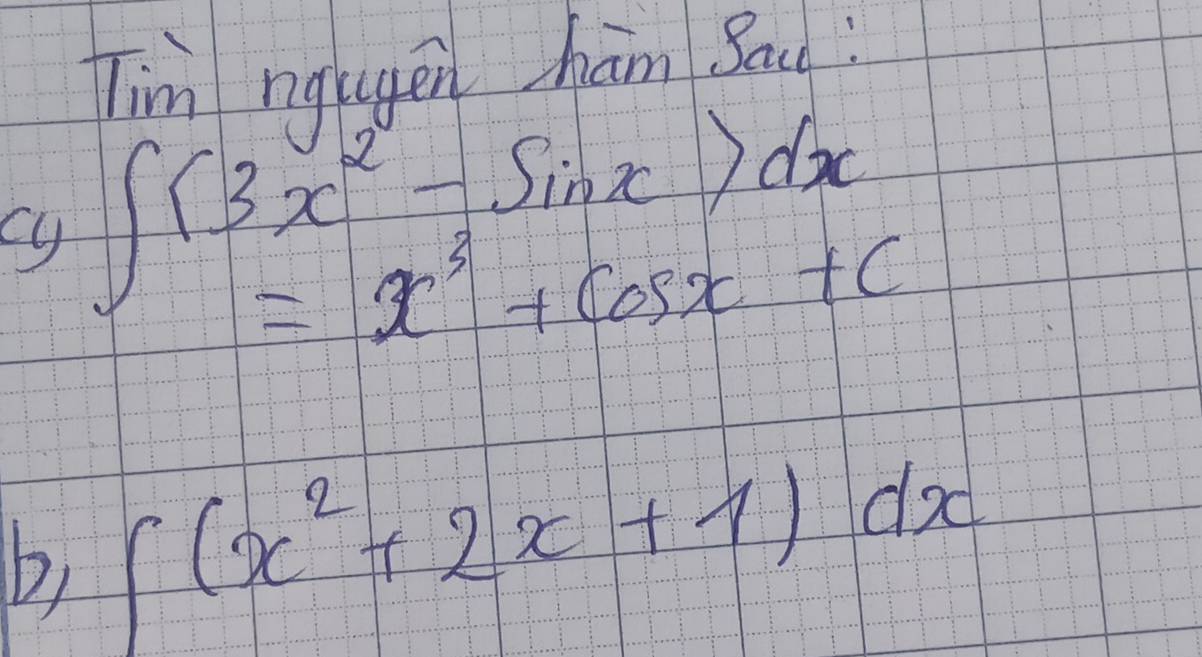 Tìm nguyên hàm sau:
a, ∫(3x² - Sinx)dx
= x³ + Cosx + C
b, ∫(x² + 2x + 1) dx